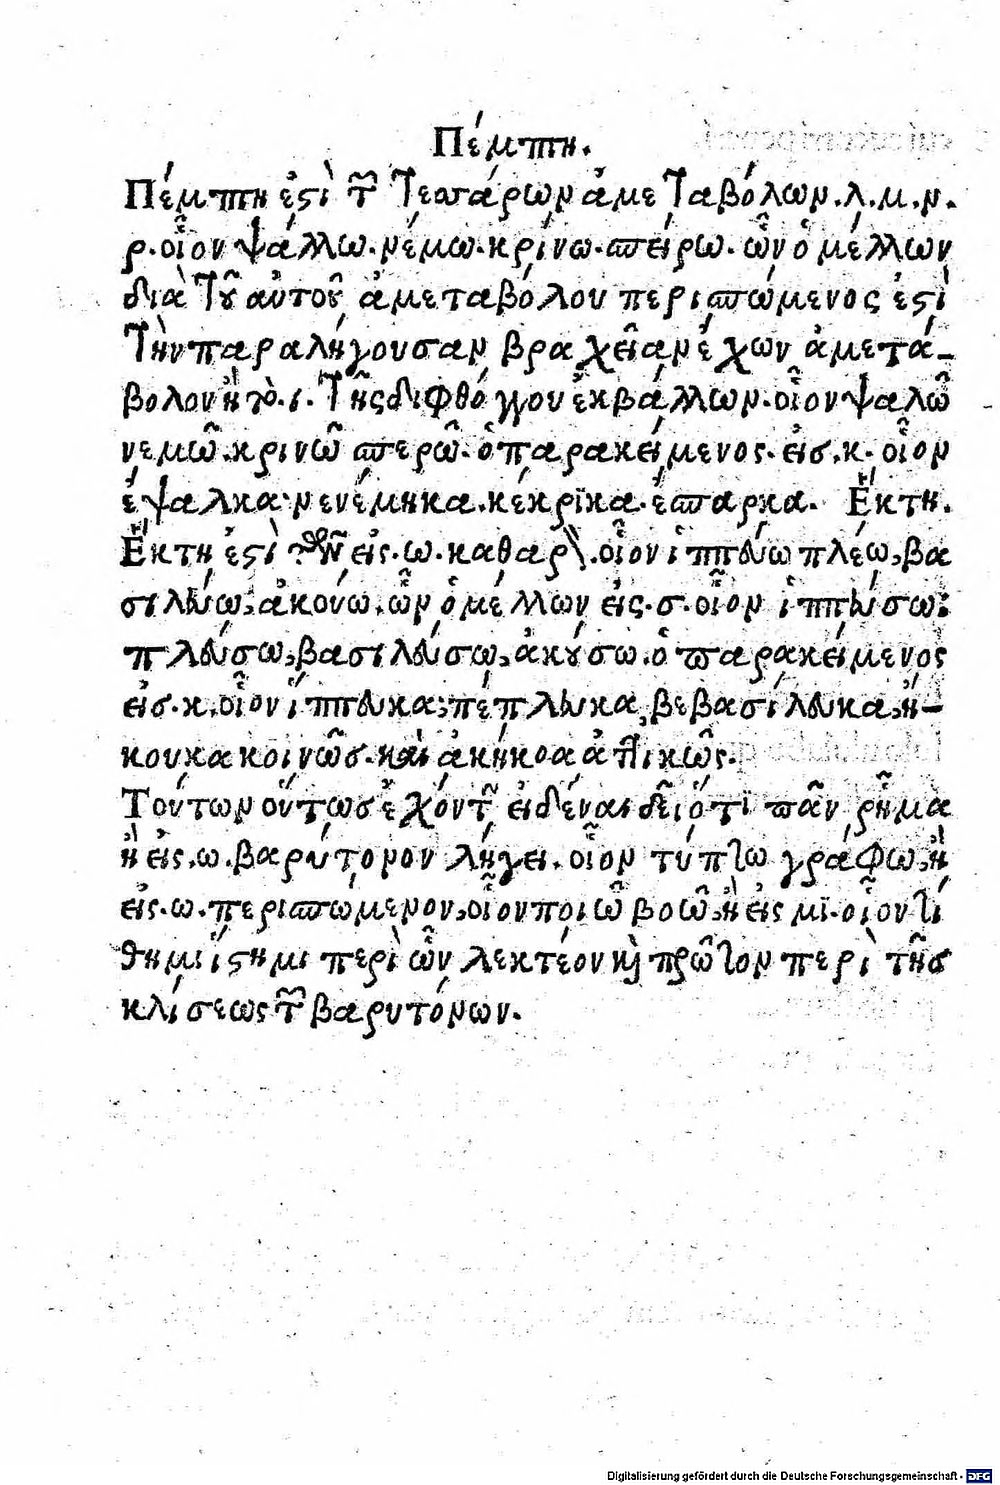 Πέμπτη.
Πέμπτη ἐστὶ τῶν τεσσάρων ἀμεταβόλων. λ. μ. ν.
ρ. οἷον ψάλλω. νέμω. κρίνω. σπείρω. ὧν ὁ μέλλων
διὰ τοῦ αὐτοῦ ἀμεταβόλου περισπώμενος ἐστὶ
τὴν παραλήγουσαν βραχεῖαν ἔχων ἀμετά-
βολον ἢ τὸ. ι. τῆς διφθόγγου ἐκβάλλων. οἷον ψαλῶ
νεμῶ. κρινῶ σπερῶ. ὁ παρακείμενος. εἰσ. κ. οἷον
ἔψαλκα. νενέμηκα. κέκρϊκα. ἔσπαρκα. Ἕκτη.
Ἕκτη ἐστὶ τῶν εἰς. ω. καθαρὸν. οἷον ἱππεύω πλέω, βα
σιλεύω, ἀκούω. ὧν ὁ μέλλων εἰς. σ. οἷον ἱππεύσω,
πλεύσω, βασιλεύσω, ἀκούσω. ὁ παρακείμενος
εἰσ. κ. οἷον ἵππευκα, πέπλευκα, βεβασίλευκα, ἤ-
κουκα κοινῶσ. καὶ ἀκήκοα ἀττικῶς.
Τούτων οὕτωσ ἐχόντων εἰδέναι δεῖ ὅτϊ πᾶν ῥῆμα
ἢ εἰς. ω. βαρύτονον λήγει. οἷον τύπτω γράφω, ἢ
εἰς. ω. περισπώμενον, οἷον ποιῶ βοῶ, ἢ εἰς μϊ. οἷον τί
θημι ἵστημι περὶ ὧν λεκτέον καὶ πρῶτον περὶ τῆσ
κλίσεως τῶν βαρυτόνων.
Digitalisierung gefördert durch die Deutsche Forschungsgemeinschaft - DFG